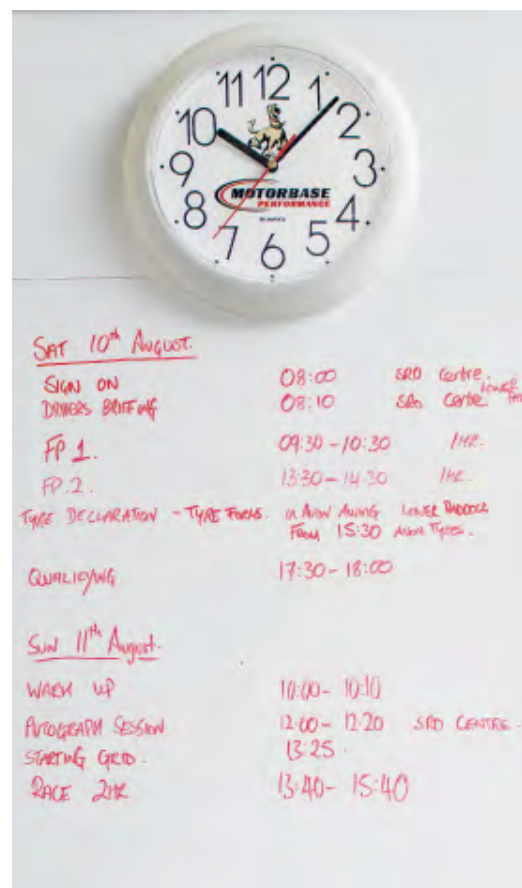 11 12 1
10 2
9 3
8 4
7 6 5
MOTORBASE
PERFORMANCE
SAT 10th AUGUST.
SIGN ON 08:00 SRO Centre.
DRIVERS BRIEFING 08:10 SRO Centre. LOWER
FP 1. 09:30-10:30 1HR.
FP.2. 13:30-14:30 1HR.
TYRE DECLARATION - TYRE FORMS. in Avon Awning LOWER PADDOCK
From 15:30 Avon Tyres.
QUALIFYING 17:30-18:00
SUN 11th August.
WARM UP 10:00-10:10
AUTOGRAPH SESSION 12:00-12:20 SRO CENTRE.
STARTING GRID. 13:25.
RACE 2HR 13:40-15:40